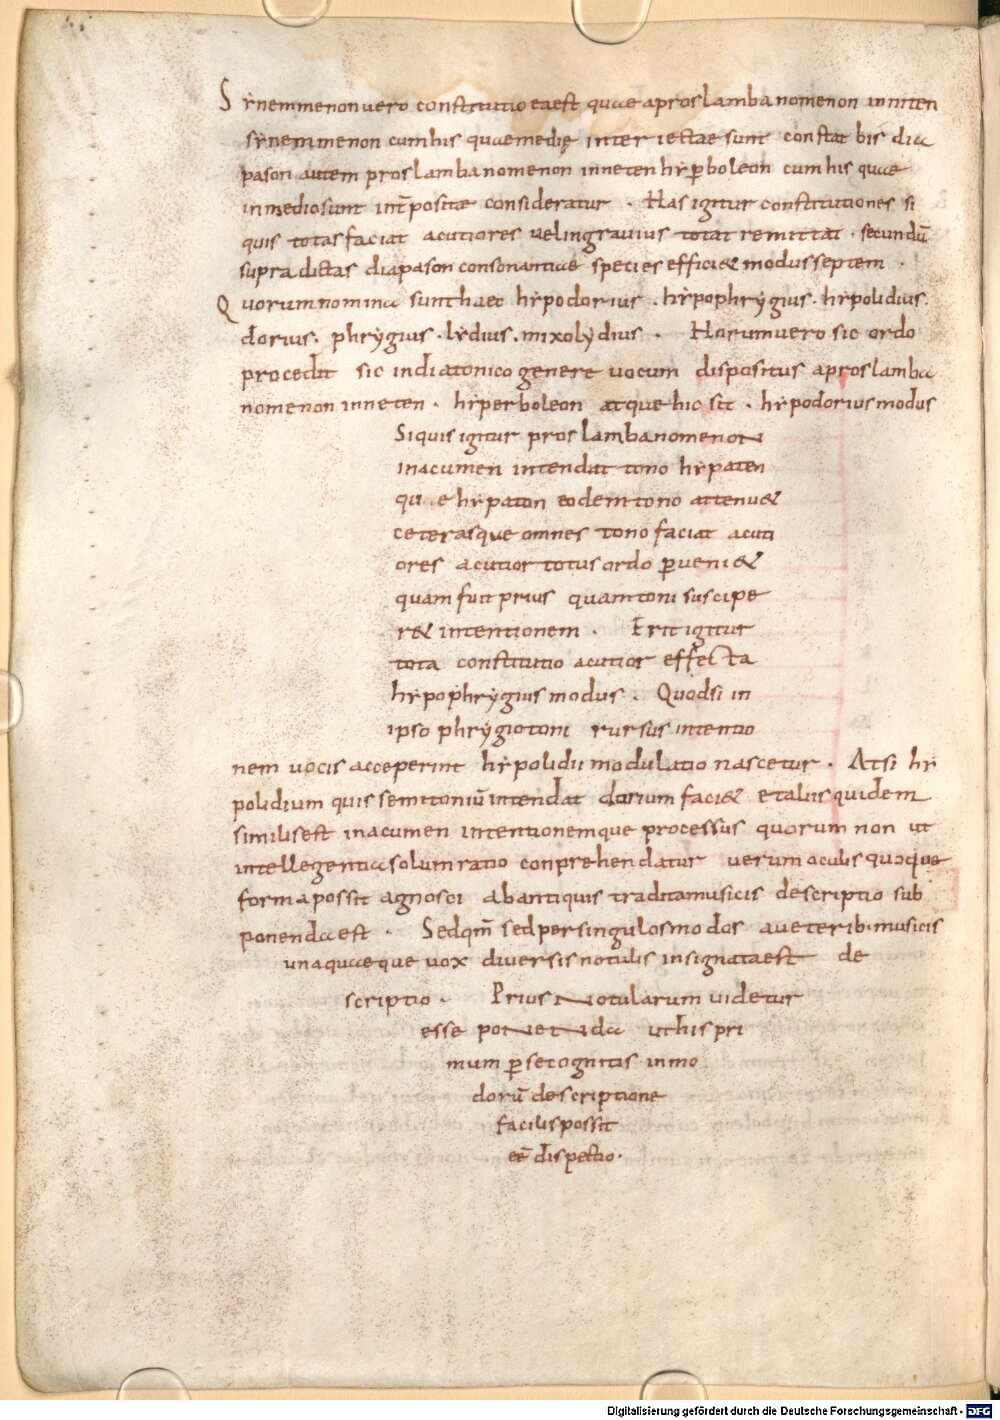 Synemmenon vero constitutio ea est quae a proslambanomenon inniten
synemmenon cum his quae medię inter iectae sunt constat bis dia
pason autem proslambanomenon inneten hyp̄boleon cum his quae
in medio sunt int̄positae consideratur . Has igitur constitutiones si
quis totas faciat acutiores vel in gravius totat remittat . secundū
supra dictas diapason consonantiae species efficiet modus septem .
Quorum nomina sunt haec hypodorius . hypophrygius . hypolidius.
dorius. phrygius . lydius . mixolydius . Horum vero sic ordo
procedit sic in diatonico genere vocum dispositus a proslamba
nomenon inneten . hyperboleon atque hic sit . hypodorius modus
Si quis igitur proslambanomenon
in acumen intendat tono hypaten
que hypaton eodem tono attenuet
ceterasque omnes tono faciat acuti
ores acutior totus ordo p̄veniet
quam fuit prius quam toni suscipe
ret intentionem . Erit igitur
tota constitutio acutior effecta
hypophrygius modus . Quodsi in
ipso phrygio toni rursus intentio
nem vocis acceperint hypolidii modulatio nascetur . At si hy
polidium quis semitoniū intendat dorium faciet et aliis quidem
similis est in acumen intentionemque processus quorum non ut
intellegentia solum ratio conprehendatur verum aculis quoque
forma possit agnosci ab antiquis tradita musicis descriptio sub
ponenda est . Sed qm̄ sed per singulos modos a veterib· musicis
una quaeque vox diversis notulis insignata est de
scriptio . Prius notularum videtur
esse ponenda ut his pri
mum p̄ se cognitis in mo
dorū descriptione
facilis possit
eē dispectio.
Digitalisierung gefördert durch die Deutsche Forschungsgemeinschaft - DFG